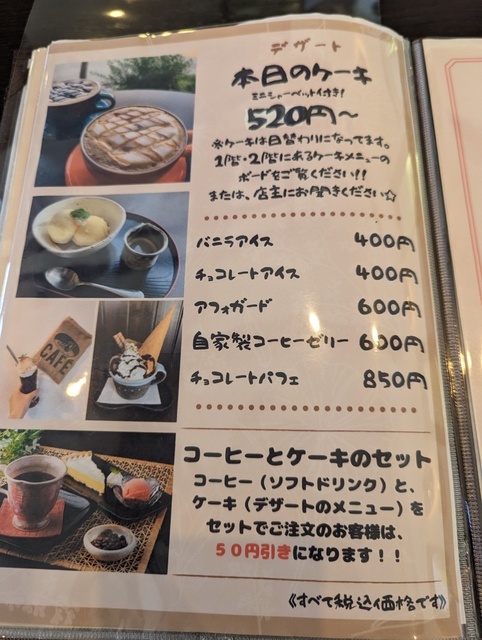 デザート
本日のケーキ
ミニシャーベット付き!
520円〜
※ケーキは日替わりになってます。
1階・2階にあるケーキメニューの
ボードをご覧ください!!
または、店主にお聞きください☆
バニラアイス 400円
チョコレートアイス 400円
アフォガード 600円
自家製コーヒーゼリー 600円
チョコレートパフェ 850円
CAFE
コーヒーとケーキのセット
コーヒー（ソフトドリンク）と、
ケーキ（デザートのメニュー）を
セットでご注文のお客様は、
５０円引きになります！！
《すべて税込価格です》